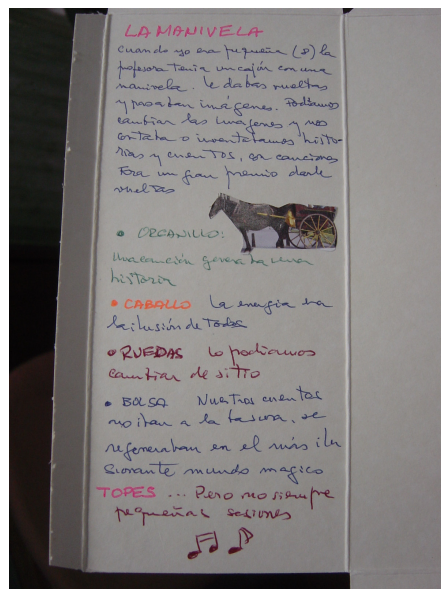 LA MANIVELA
cuando yo era pequeña (8) la
profesora tenía un cajón con una
manivela. le dabas vueltas
y pasaban imágenes. Podíamos
cambiar las imágenes y nos
contaba o inventabamos histo-
rias y cuentos, con canciones
Era un gran premio darle
vueltas
• ORGANILLO:
Una canción generaba una
historia
• CABALLO La energía era
la ilusión de Todos
• RUEDAS Lo podíamos
cambiar de sitio
• BOLSA Nuestros cuentos
no iban a la basura, se
regeneraban en el más ilu
sionante mundo magico
TOPES ... Pero no siempre
pequeñas sesiones